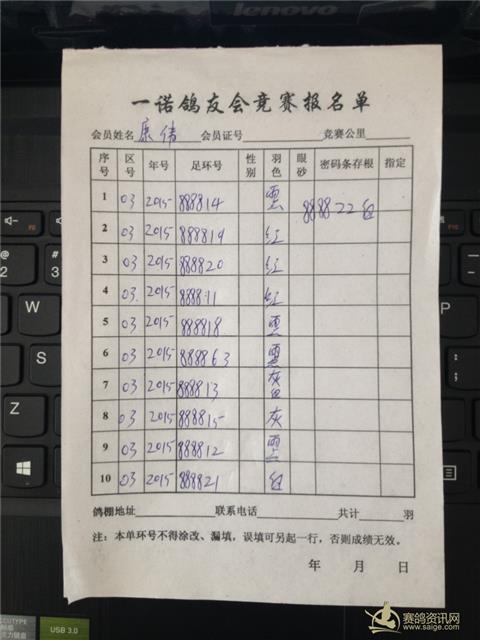 lenovo
一诺鸽友会竞赛报名单
会员姓名 康伟 会员证号 竞赛公里
序号 区号 年号 足环号 性别 羽色 眼砂 密码条存根 指定
1 03 2015 888814 雨 888822
2 03 2015 888819 红
3 03 2015 888820 红
4 03 2015 888811 红
5 03 2015 888818
6 03 2015 888863
7 03 2015 888813 灰
8 03 2015 888815 灰
9 03 2015 888812
10 03 2015 888821
鸽棚地址 联系电话 共计 羽
注:本单环号不得涂改、漏填,误填可另起一行,否则成绩无效。
年 月 日
@
2
#
3
W
S
X
P
:
;
CUTYPE
USB 3.0
赛鸽资讯网
www.saige.com